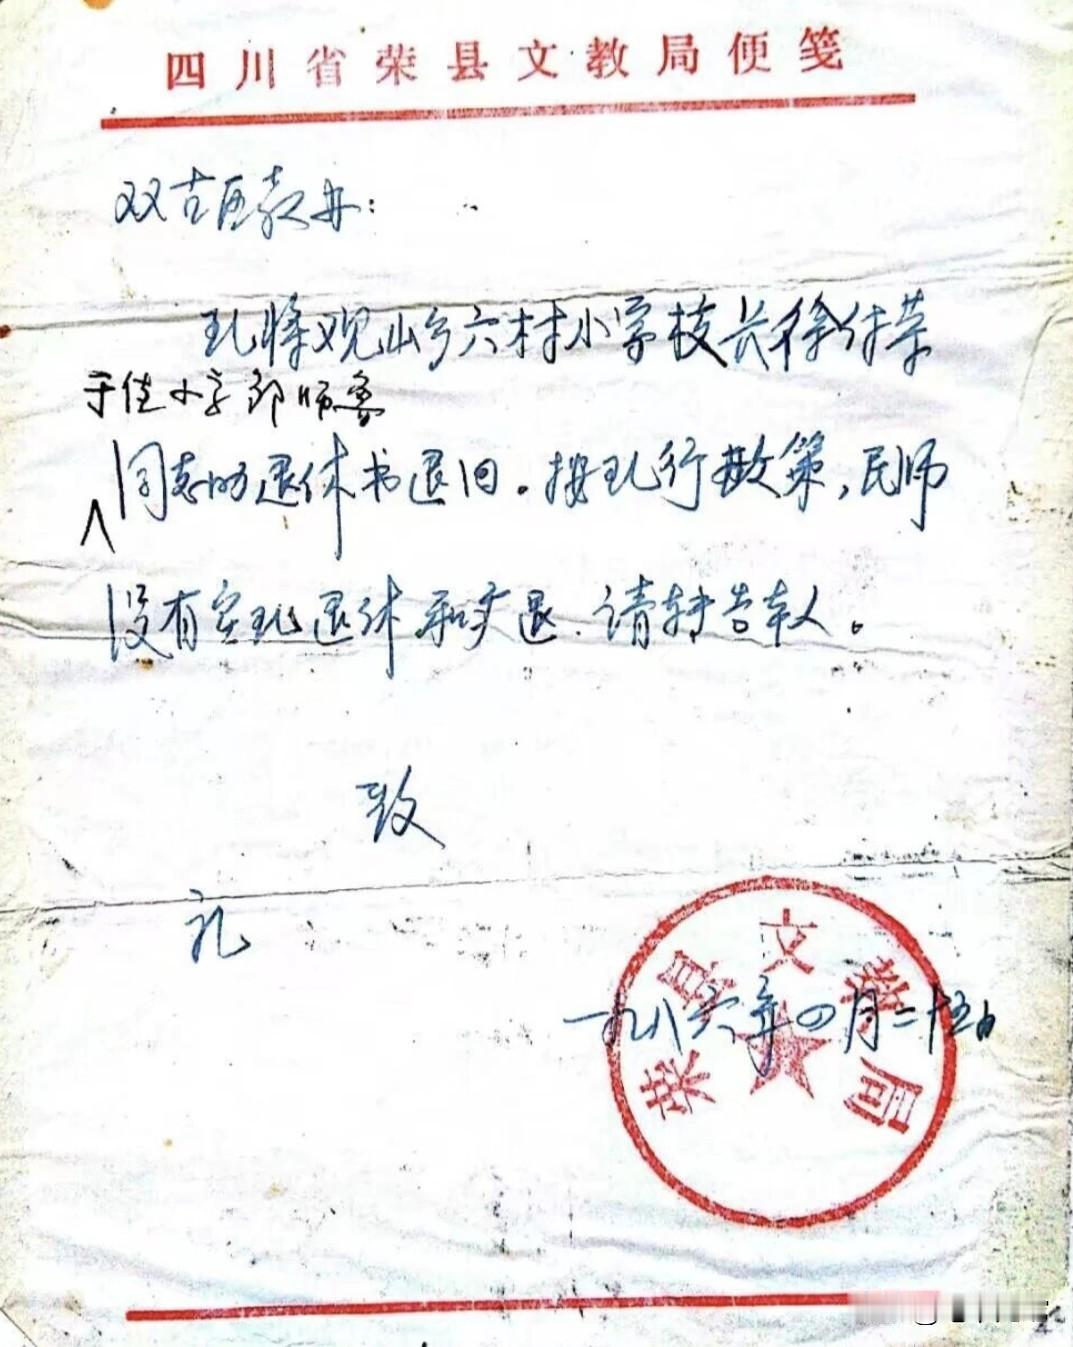 四川省荣县文教局便笺
双古区教办：
现将观山乡六村小学校长徐付荣
于佳小学
同志的退休书退回。按现行政策，民师
没有实现退休和退，请转告本人。
致
礼
荣县文教局
一九八六年四月二十五日